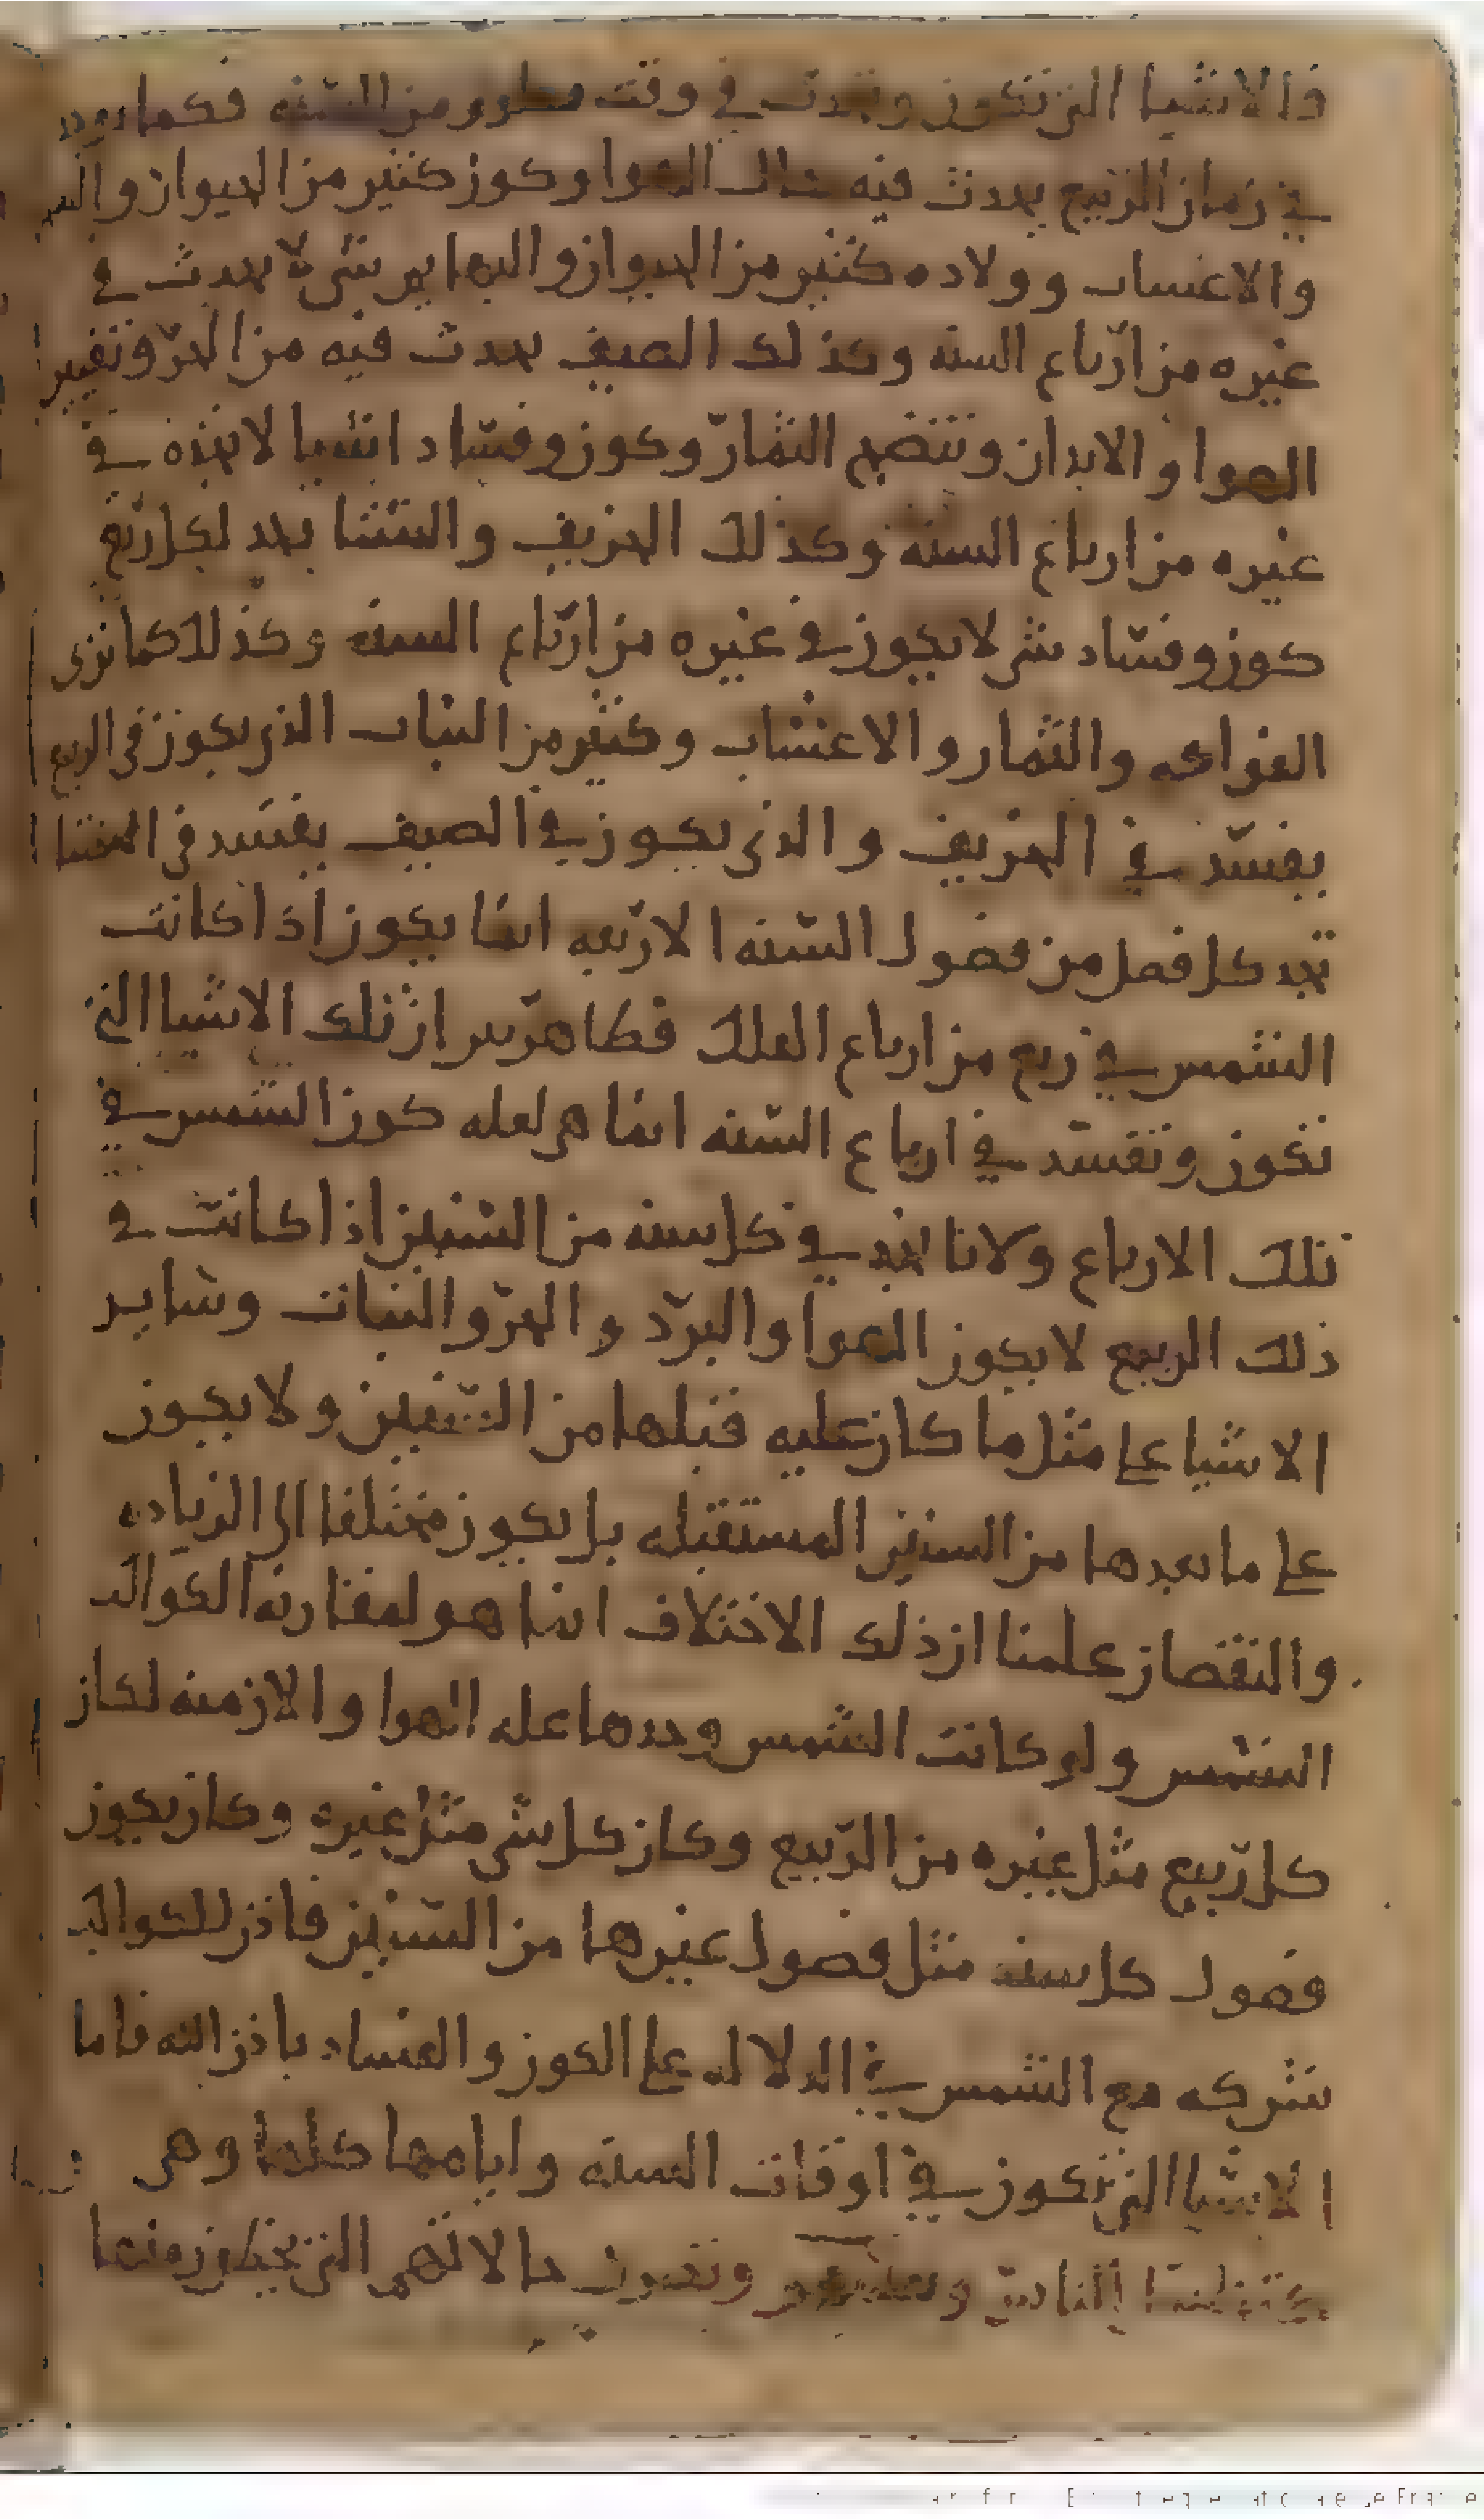 فالاشيا التى تكون وتحدث فى وقت معلوم من السنه فكما
فى زمان الربيع يحدث فيه اعتدال الهوا وكون كثير من الحيوان
والاعشاب وولاده كثير من الحيوان والبهايم شى لا يحدث فى
غيره من ارباع السنه وكذلك الصيف يحدث فيه من الحر وتغيير
الهوا والابدان وتنضج الثمار وكون وفساد اشيا لا تجده فى
غيره من ارباع السنه وكذلك الخريف والشتا نجد لكل ربع
كون وفساد شى لا يكون فى غيره من ارباع السنه وكذلك كما نرى
الفواكه والثمار والاعشاب وكثير من النبات الذى يكون فى الربيع
يفسد فى الخريف والذى يكون فى الصيف يفسد فى الشتا
نجد كل فصل من فصول السنه الاربعه انما يكون اذا كانت
الشمس فى ربع من ارباع الفلك فظاهر بين ان تلك الاشيا التى
تكون وتفسد فى ارباع السنه انما هى لعله كون الشمس فى
تلك الارباع ولانا نجد فى كل سنه من السنين اذا كانت فى
ذلك الربيع لا يكون الهوا والبرد والحر والنبات وساير
الاشيا على مثل ما كان عليه قبلها من السنين ولا يكون
على ما بعدها من السنين المستقبله بل يكون مختلفا الى الزياده
والنقصان علمنا ان ذلك الاختلاف انما هو لمقارنه الكواكب
الشمس ولو كانت الشمس وحدها عله الهوا والازمنه لكان
كل ربيع مثل غيره من الربيع وكان كل شى مثل غيره وكان يكون
فصول كل سنه مثل فصول غيرها من السنين فاذن للكواكب
شركه مع الشمس فى الدلاله على الكون والفساد باذن الله فاما
الاشيا التى تكون فى اوقات السنه وايامها كلها وهى
الناس وتغيرت حالاتهم التى